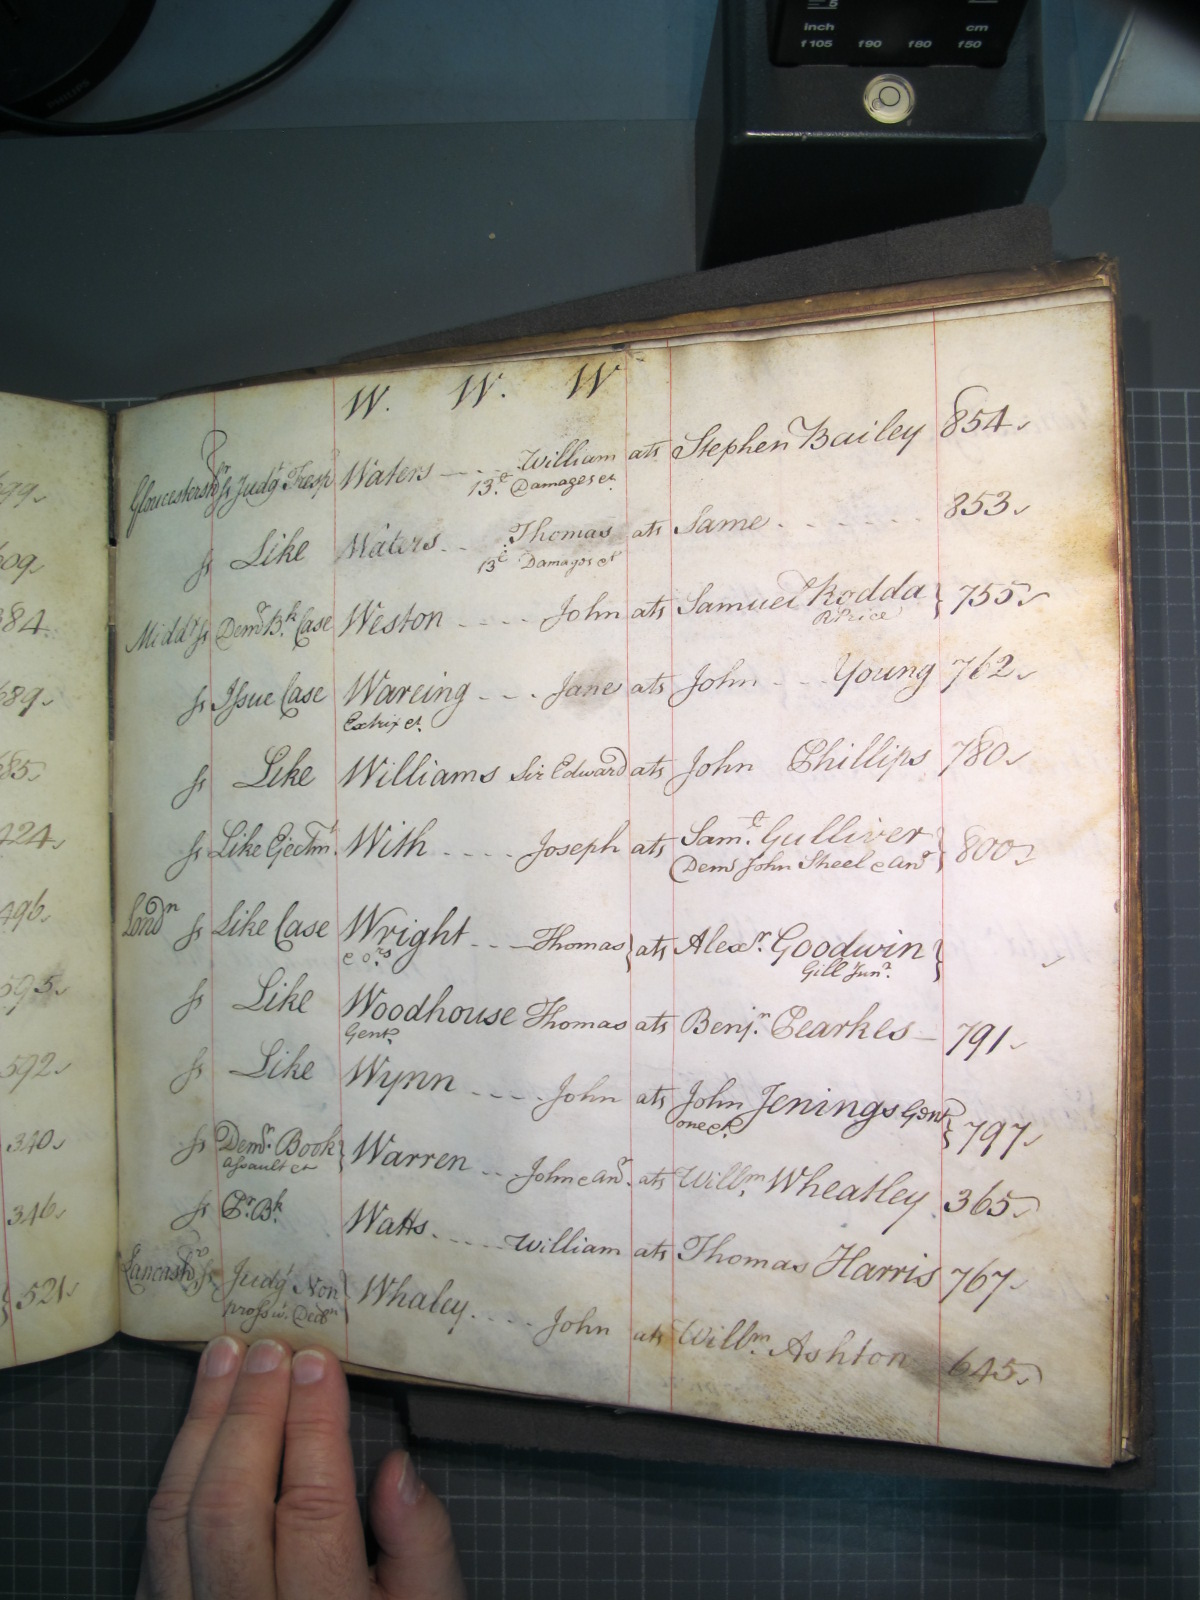 inch cm
f105 f90 f80 f50
PHILIPS
W. W. W
Gloucestersh.r ss Judg.t Tresp Waters - - - William ats Stephen Bailey 854
13.e Damages et
ss Like Waters - - Thomas ats Same - - - - - 853
13.e Damages et
Midd.x ss Dem.r B.k Case Weston - - - - John ats Samuel Rodda } 755
R Price
ss Issue Case Wareing - - - Jane ats John - - Young 762
Extrix et.
ss Like Williams Sir Edward ats John Phillips 780
ss Like Ejectm.t With - - - - Joseph ats Sam.l Gulliver } 800
Dem John Sheel e an.r
Lond.n ss Like Case Wright - - - Thomas } ats Alex.r Goodwin }
e o.rs Gill Jun.r
ss Like Woodhouse Thomas ats Benj.n Pearkes - 791
Gent.
ss Like Wynn - - - - John ats John Jenings Gent } 797
one et.
ss Dem.r Book } Warren - - - John e an.r ats Will.m Wheatley 365
assault et
ss P.r B.k Watts - - - - - William ats Thomas Harris 767
Lancash.r ss Judg.t Non } Whaley - - - - John ats Will.m Ashton 645
pross w.t Decl.n
609
384
689
685
424
496
595
592
340
346
} 521